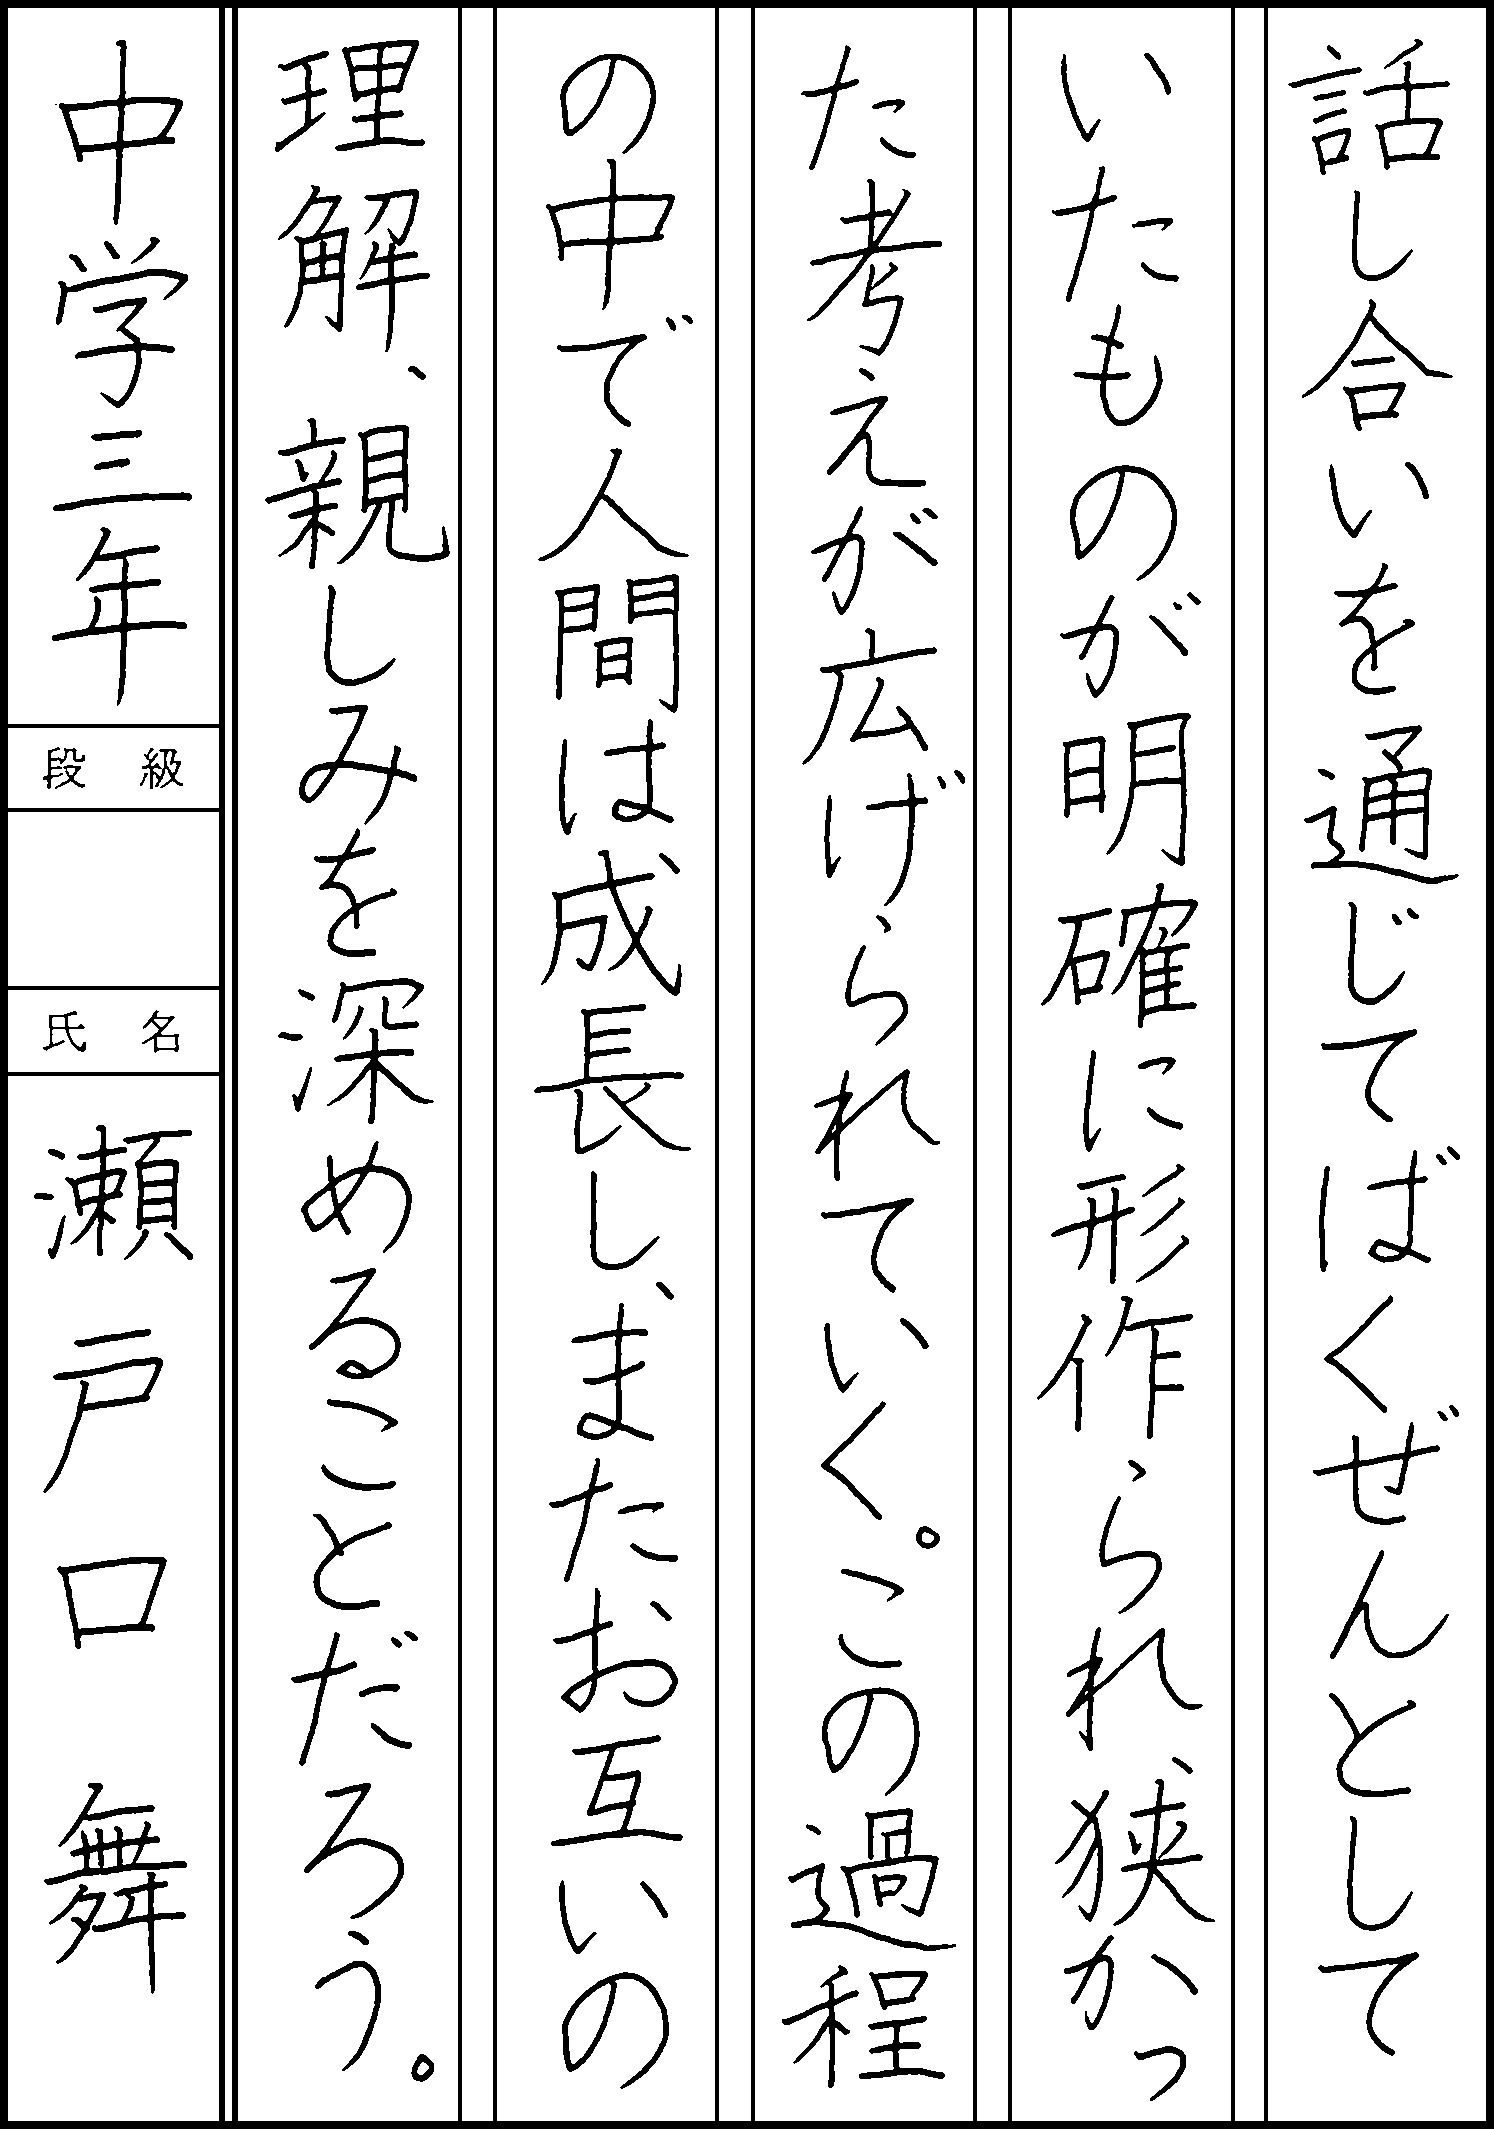 話し合いを通じてばくぜんとして
いたものが明確に形作られ、狭かっ
た考えが広げられていく。この過程
の中で人間は成長し、またお互いの
理解、親しみを深めることだろう。
中学三年
段級
氏名
瀬戸口舞